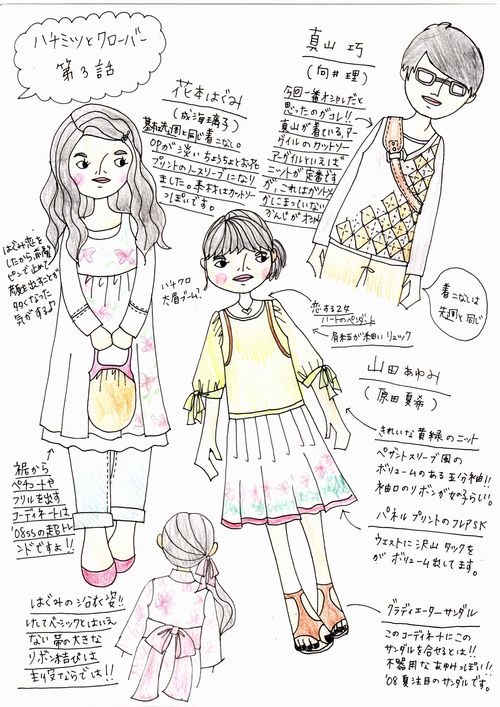 ハチミツとクローバー
第3話
真山 巧
(向井理)
今回一番オシャレだと
思ったのがコレ!!
真山が着ている、アー
ガイルのカットソー
アーガイルといえば
ニットが定番です
が、これはカットソー
着こなしは
先週と同じ
花本はぐみ
(成海璃子)
基本先週と同じ着こなし。
OPが淡いちょうちょとお花
プリントのノースリーブになり
ました。素材はカットソー
っぽいです。
はぐみ恋を
したから、前髪
ピンで止めて
顔を出すことが
多くなった
気がする♪
ハチクロ
太眉ブーム?
恋する乙女
ハートのペンダント
肩紐が細いリュック
山田あゆみ
(原田夏希)
きれいな黄緑のニット
ペザントスリーブ風の
ボリュームのある五分袖!!
袖口のリボンが女の子らしい。
パネルプリントのフレアSK
ウエストに沢山タックを
がボリューム出してます。
グラディエーターサンダル
このコーディネートにこの
サンダルを合せるとは!!
不器用なあゆみっぽい!!
'08夏注目のサンダルです。
裾から
ペチコートや
フリルを出す
コーディネートは
'08SSの超トレ
ンドですよ!!
はぐみの浴衣姿!!
けしてベーシックとはいえ
ない帯の大きな
リボン結びは
ならでは!!